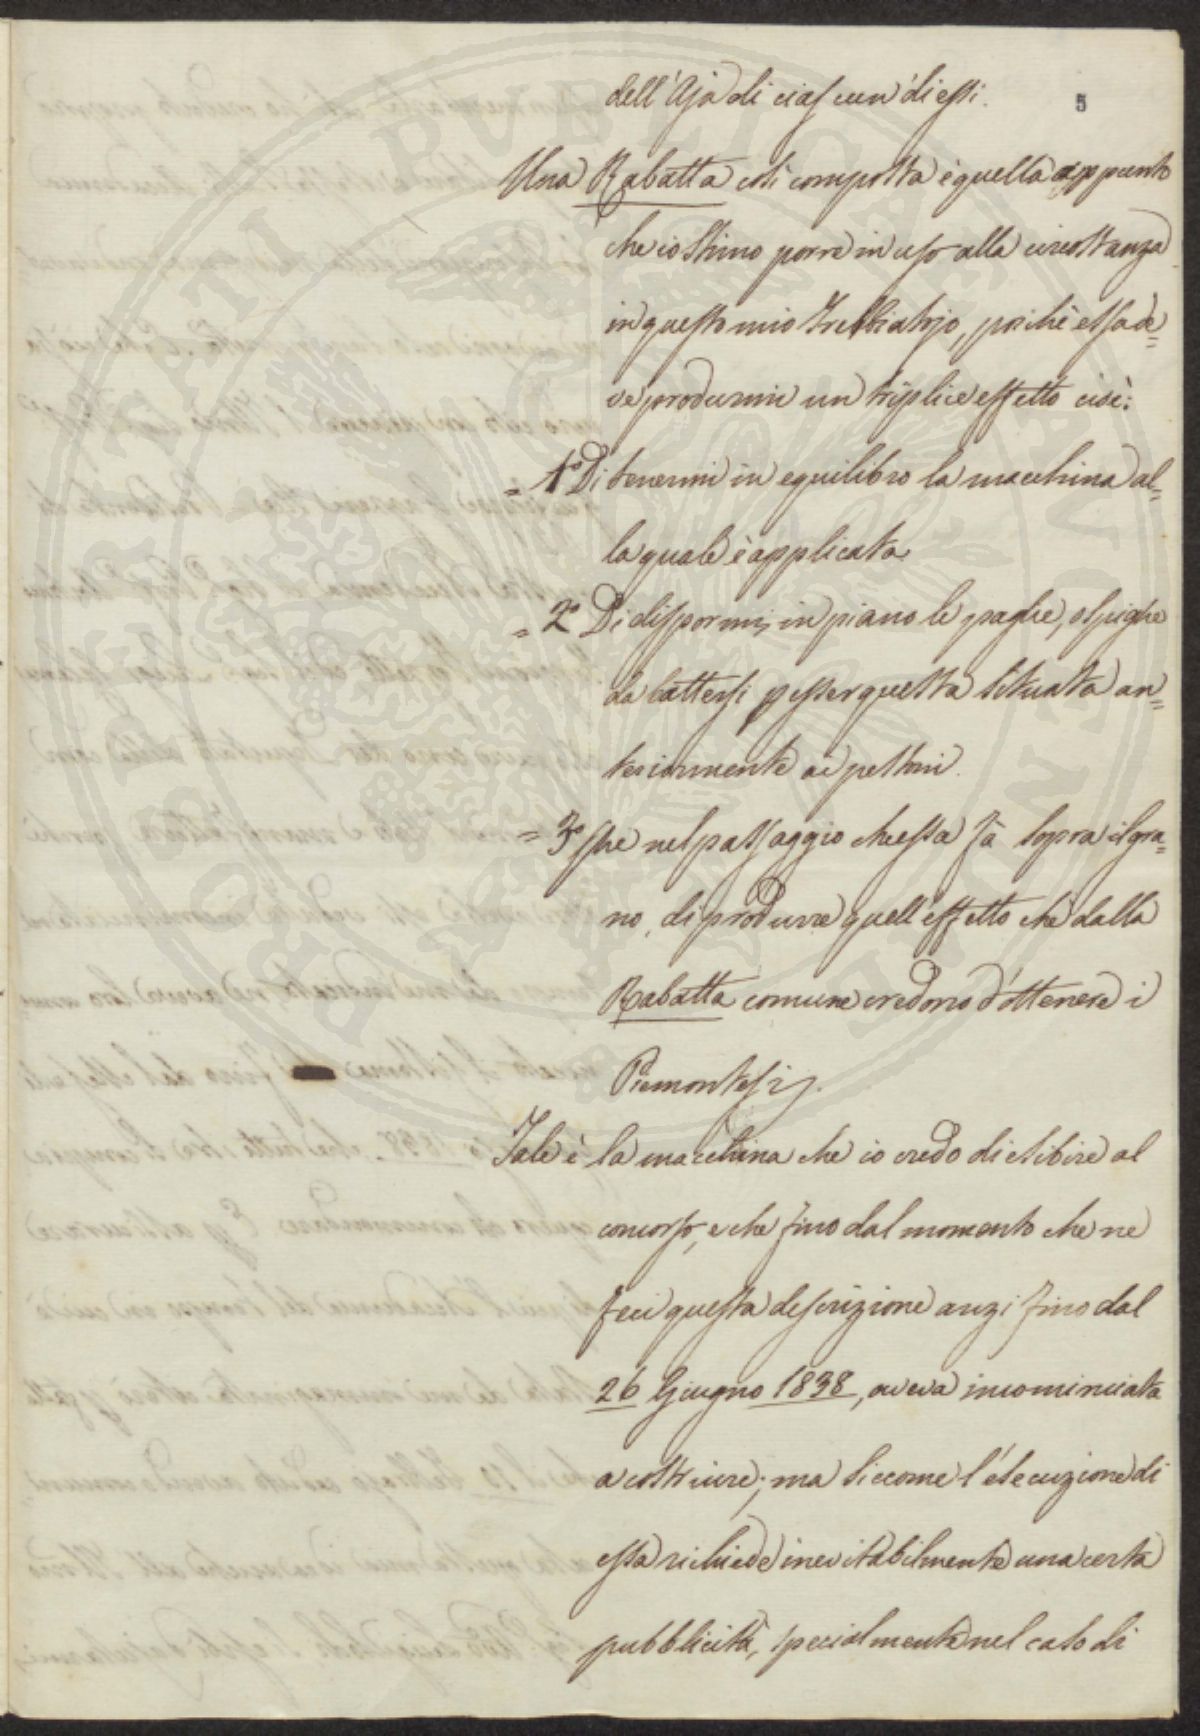 dell'Aja di ciascun' di essi.
5
Una Rabatta così composta è quella appunto
che io stimo porre in uso alla circostanza
in questo mio Trebbiatojo, poichè essa de=
ve produrmi un triplice effetto cioè:
= 1º Di tenermi in equilibro la macchina al=
la quale è applicata
= 2º Di dispormi, in piano le paglie, o spighe
da battersi p esser questa situata an=
teriormente ai pettoni.
= 3º che nel passaggio che essa fà sopra il gra=
no, di produrre quell'effetto che dalla
Rabatta comune credono d'ottenere i
Piemontesi.
Tale è la macchina che io credo di esibire al
concorso, e che fino dal momento che ne
feci questa descrizione anzi fino dal
26 Giugno 1838, aveva incominciata
a costruire; ma siccome l'esecuzione di
essa richiede inevitabilmente una certa
pubblicità, specialmente nel caso di
PROSPERITATI PUBLICAE